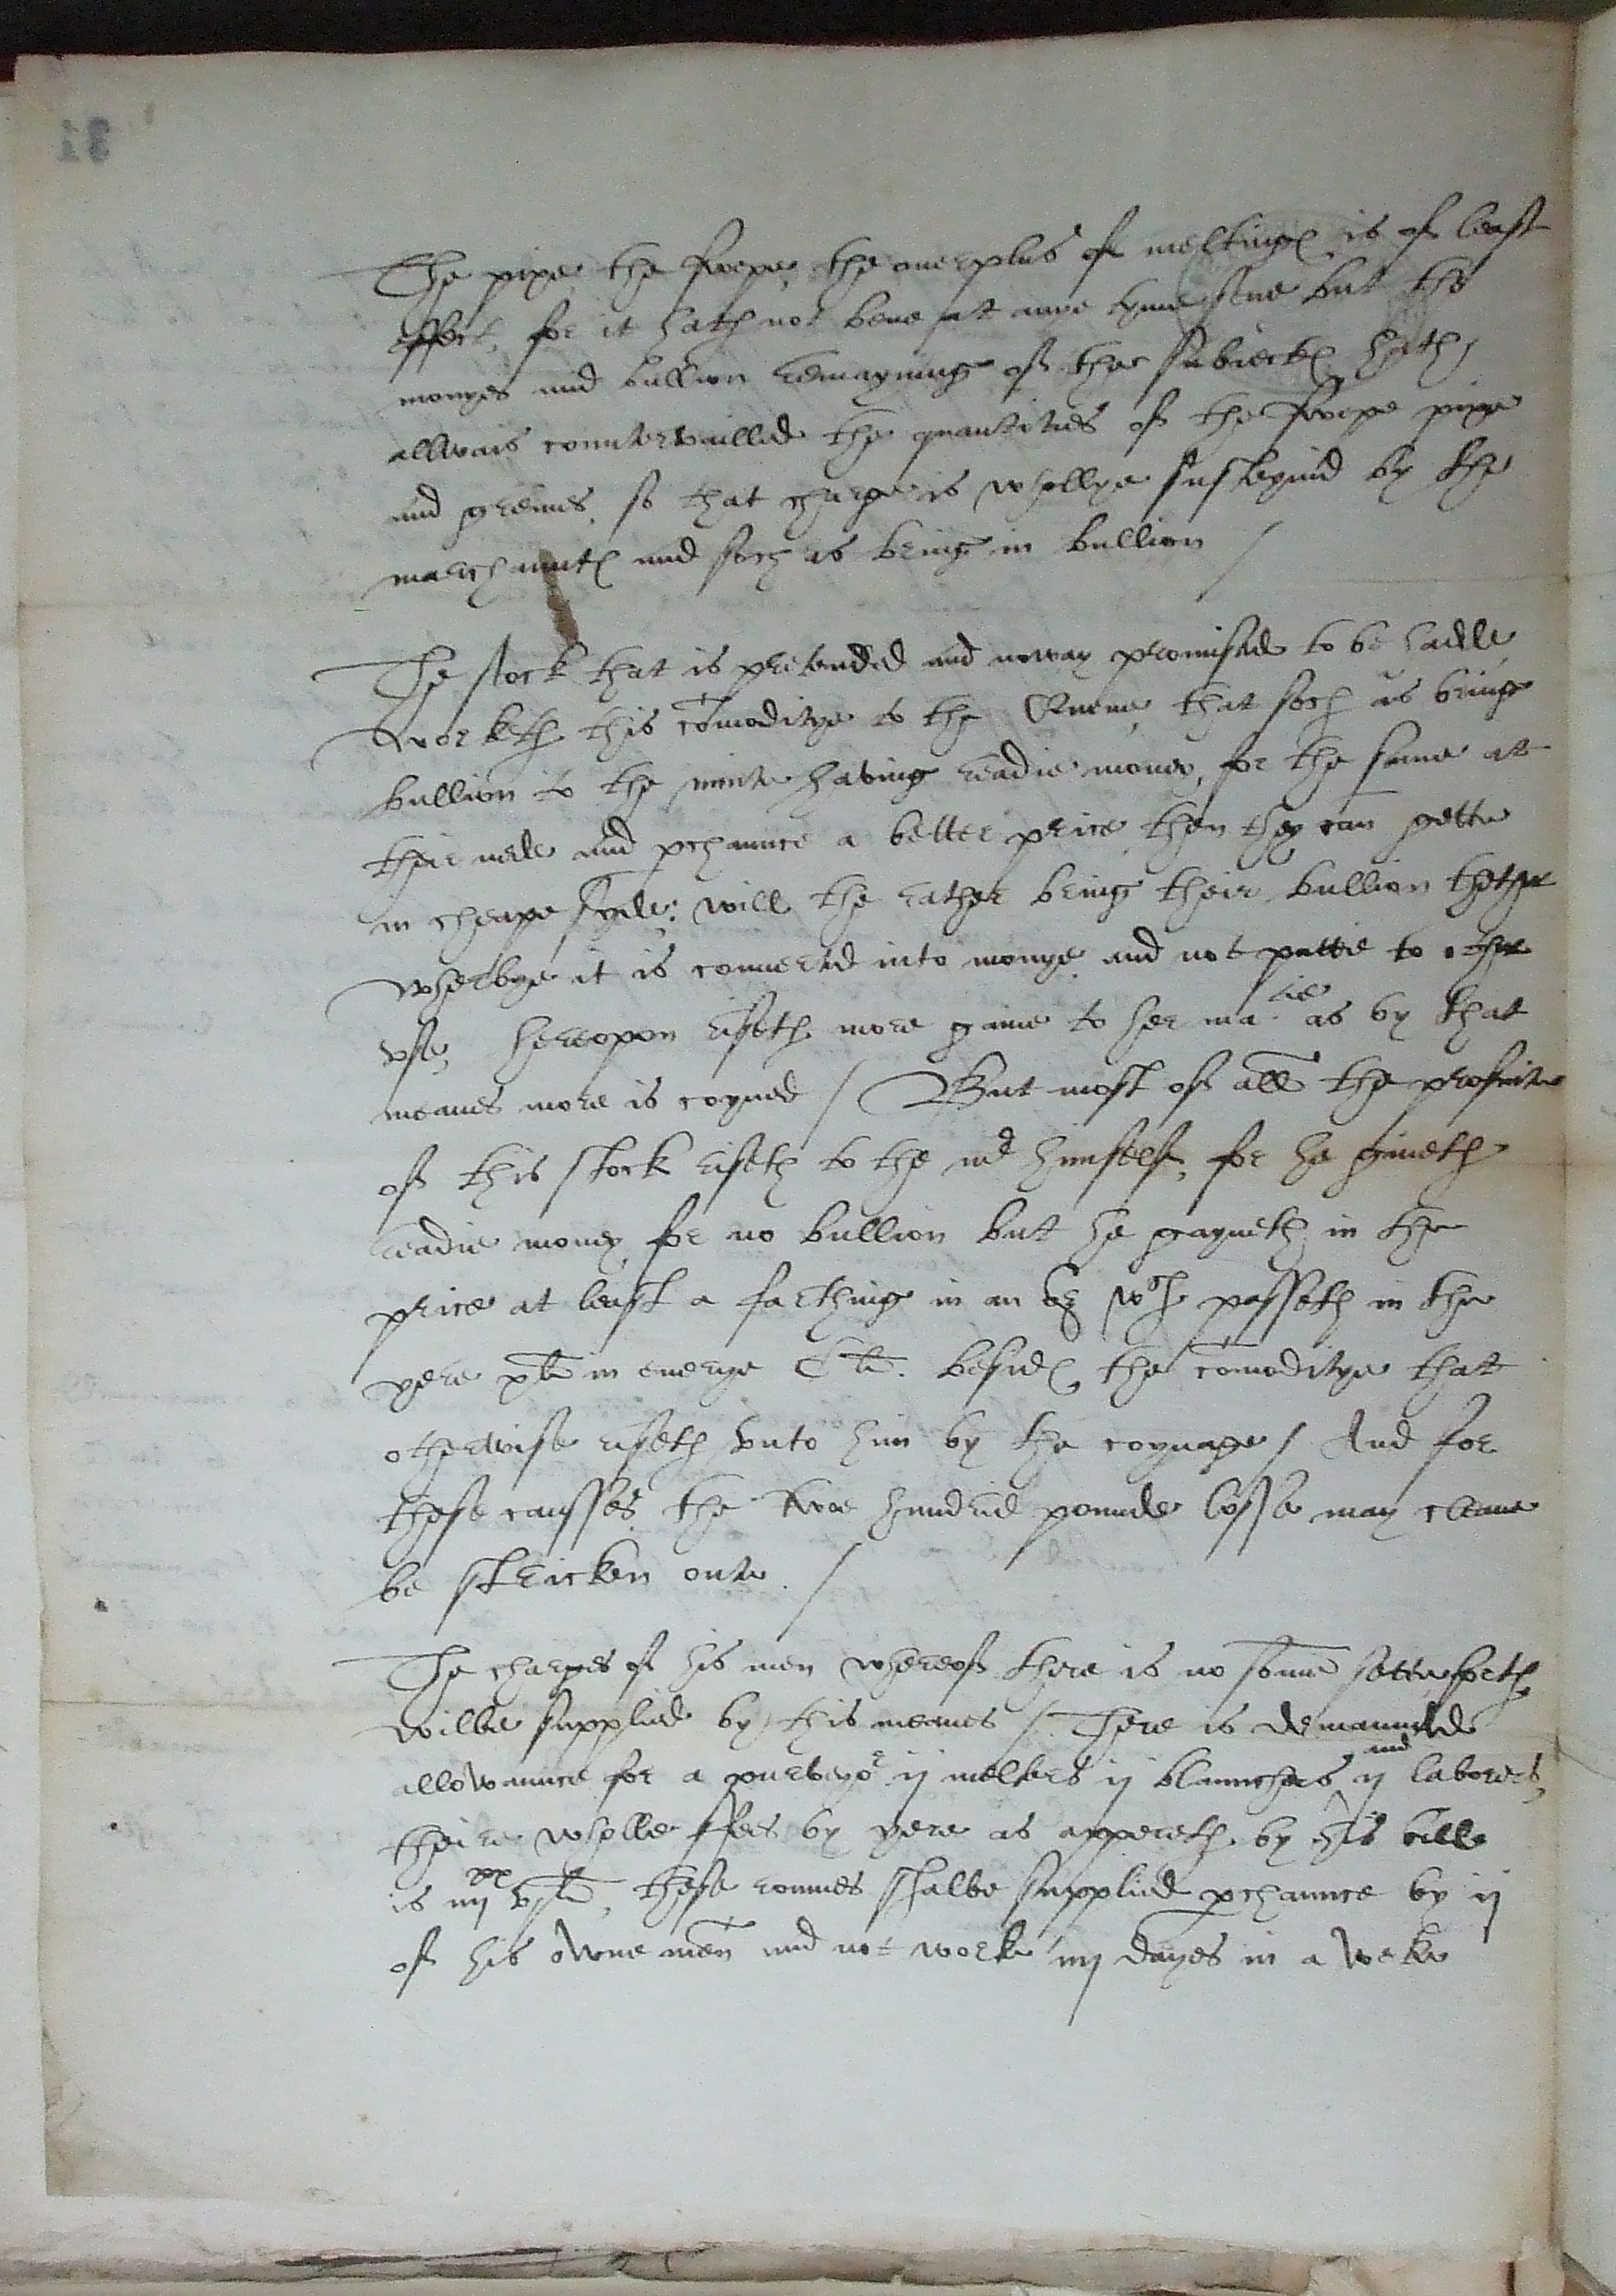 The pipe the swepe, the overplus of meltinges is of least
effect, for it hath not bene at anye tyme sene but the
monyes and bullion remayning of the subiectes hath
allwais countervailled the quantities of the swepe pipe
and greines, so that charge is whollye susteynid by the
marchauntes and soch as bring in bullion /
The stock that is pretended and noway promised to be hadde
worketh this comoditye to the Quene, that soch as bringe
bullion to the minte having readie money, for the same at
their nede and pchaunce a better price then they can gette
in cheape syde: will the rather bring their bullion thether
wherbye it is conuertid into monye and not puttie to other
vse, hereopon riseth more gaine to her ma.tie as by that
meanes more is coyned / But most of all the profeite
of this stock riseth to the himself, for he giueth
readie money for no bullion but he gayneth in the
price at least a farthing in an oz wch passeth in the
yere in euerye besides the comoditye that
otherwise riseth vnto him by the coynage / And for
these causses the two hundrid pounde losse may cleane
be stricken oute. /
The charges of his men whereof there is no somme sette forth
wilbe supplied by this meanes / There is demaunded
allowaunce for a purveyor ij melters ij blaunchers and ij laborers,
theire wholle ffees by yere as appereth by his bille
is these roumes shalbe supplied pchaunce by ij
of his owne men and not worke iiij dayes in a weke
31